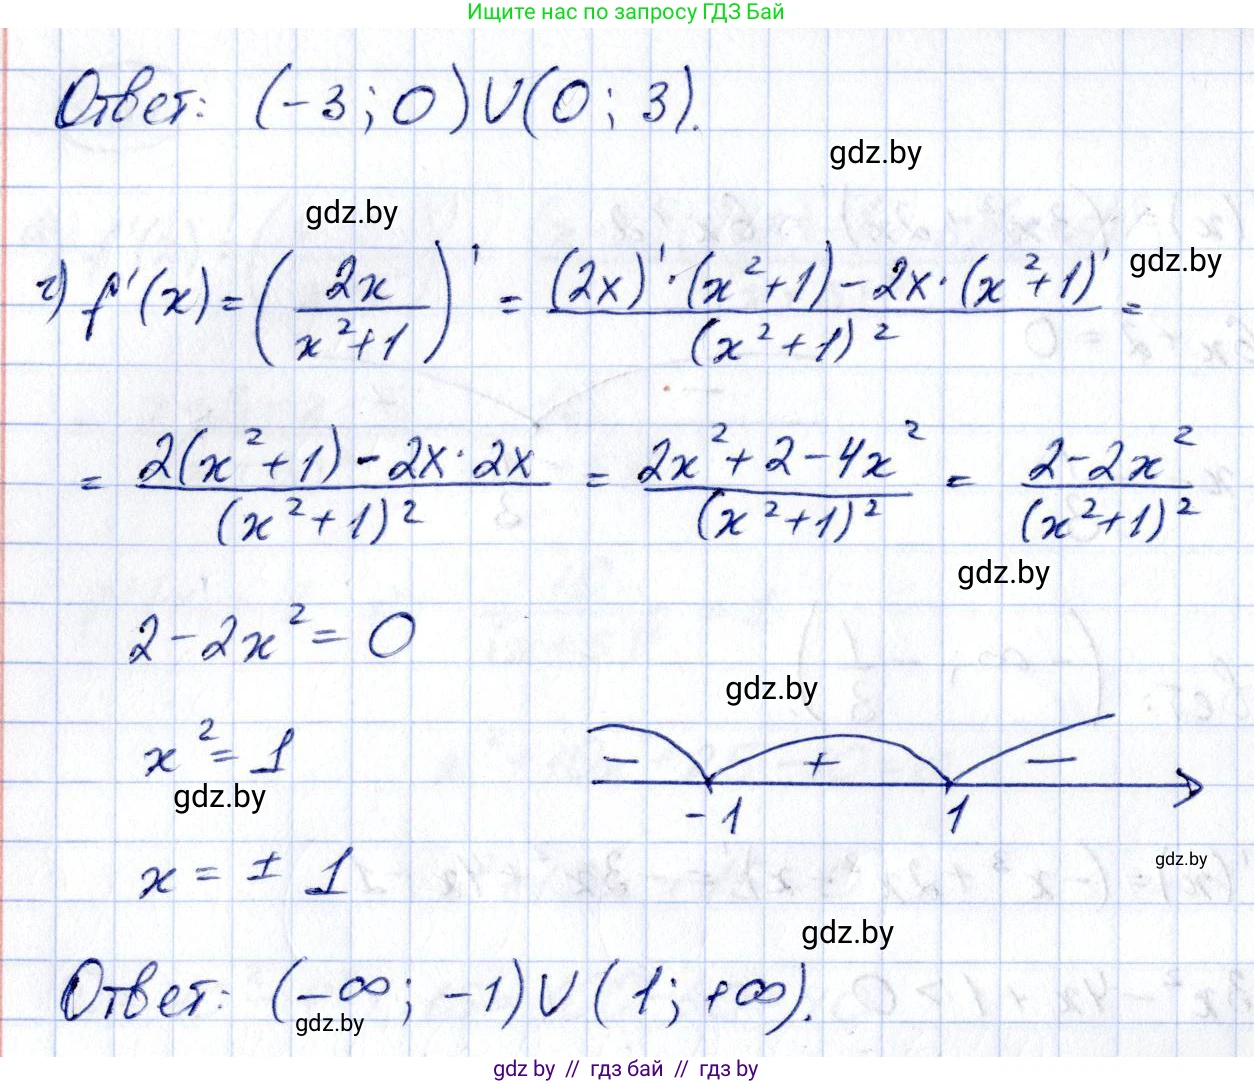 Ищите нас по запросу ГДЗ Бай
Ответ: (-3; 0) ∪ (0; 3).
gdz.by
gdz.by
gdz.by
г) f'(x) = (2x / (x²+1))' = ((2x)' · (x²+1) - 2x · (x²+1)') / (x²+1)² =
= (2(x²+1) - 2x · 2x) / (x²+1)² = (2x² + 2 - 4x²) / (x²+1)² = (2 - 2x²) / (x²+1)²
gdz.by
2 - 2x² = 0
gdz.by
x² = 1
− + −
gdz.by
-1 1
x = ± 1
gdz.by
gdz.by
Ответ: (-∞; -1) ∪ (1; +∞).
gdz.by
gdz by // гдз бай // гдз by